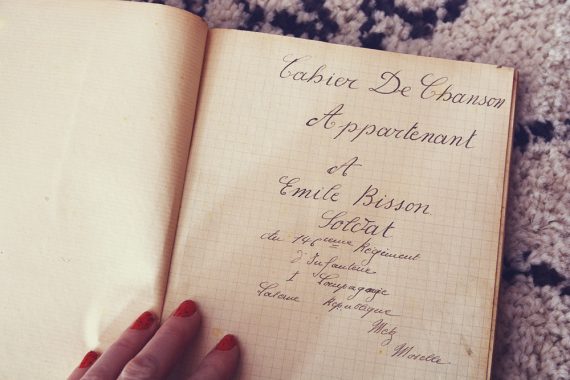 Cahier De Chanson
Appartenant
A
Emile Bisson.
Soldat
du 146ième Régiment
d'Infanterie
1 Compagnie
Caserne République
Metz
Moselle